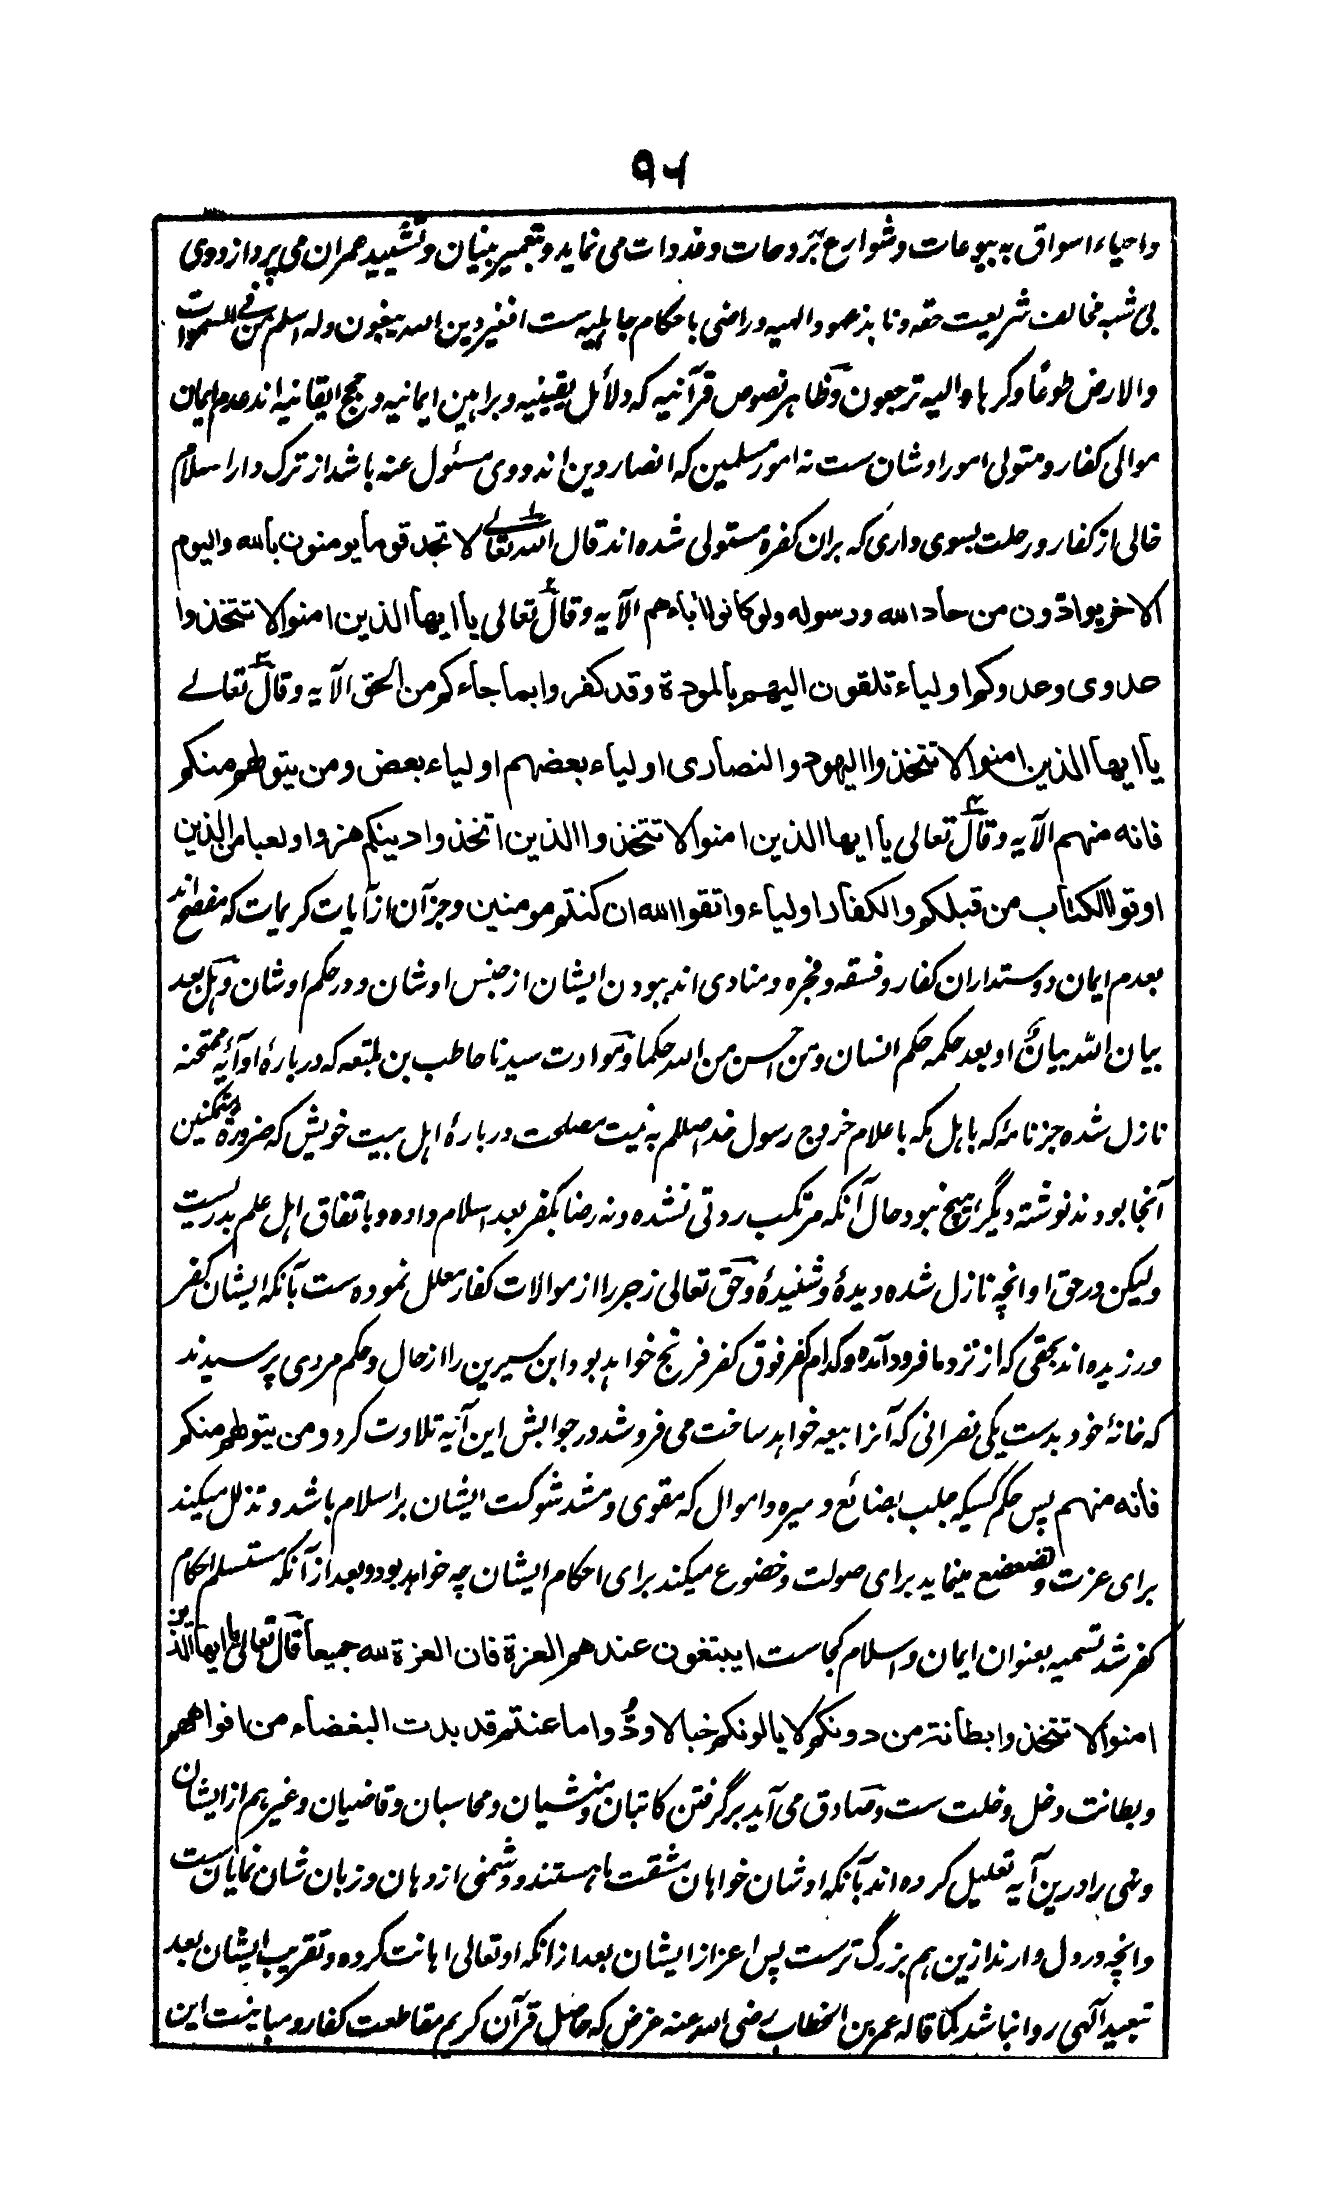 ۹۶
واحیاء اسواق به بیوعات وشوارع بروحات وغدوات می نماید وبتعمیر بنیان وتشیید عمران می پردازد وی
بی شبه مخالف شریعت حقه ونابذ عهود الهیه وراضی باحکام جاهلیه ست افغیر دین الله یبغون وله اسلم من فی السموات
والارض طوعًا وکرها والیه ترجعون وظاهر نصوص قرآنیه که دلائل یقینیه وبراهین ایمانیه وحجج ایقانیه اند عدم ایمان
موالی کفار ومتولی امور اوشان ست نه امور مسلمین که انصار دین اند ووی مسئول عنه باشد از ترک دار اسلام
خالی از کفار ورحلت بسوی داری که بران کفره مستولی شده اند قال الله تعالے لا تجد قوما یومنون بالله والیوم
الاخر یوادّون من حاد الله ورسوله ولو کانوا اٰباءهم الآیه وقال تعالی یا ایها الذین امنوا لا تتخذوا
عدوی وعدوکم اولیاء تلقون الیهم بالمودة وقد کفروا بما جاءکم من الحق الآیه وقال تعالے
یا ایها الذین امنوا لا تتخذوا الیهود والنصاری اولیاء بعضهم اولیاء بعض ومن یتولهم منکم
فانه منهم الآیه وقال تعالی یا ایها الذین امنوا لا تتخذوا الذین اتخذوا دینکم هزوا ولعبا من الذین
اوتوا الکتاب من قبلکم والکفار اولیاء واتقوا الله ان کنتم مومنین وجز آن از آیات کریمات که مفصح اند
بعدم ایمان دوستداران کفار وفسقه وفجره ومنادی اند ببودن ایشان از جنس اوشان ودر حکم اوشان وهل بعد
بیان الله بیان او بعد حکمه حکم انسان ومن احسن من الله حکما وموادت سیدنا حاطب بن بلتعه که دربارهٔ او آیه ممتحنه
نازل شده جز نامهٔ که باهل مکه باعلام خروج رسول خدا صللم به نیت مصلحت دربارهٔ اهل بیت خویش که ضرورة متمکنین
آنجا بودند نوشته دیگر هیچ نبود حال آنکه مرتکب ردتی نشده ونه رضا بکفر بعد اسلام داده وباتفاق اهل علم بدریست
ولیکن در حق او انچه نازل شده دیدهٔ وشنیدهٔ وحق تعالی زجر را از موالات کفار معلل نموده ست بآنکه ایشان کفر
ورزیده اند بحقی که از نزد ما فرود آمده وکدام کفر فوق کفر فرنج خواهد بود وابن سیرین را از حال وحکم مردی پرسیدند
که خانهٔ خود بدست یکی نصرانی که آنرا بیعه خواهد ساخت می فروشد در جوابش این آیه تلاوت کرد ومن یتولهم منکم
فانه منهم پس حکم کسیکه جلب بضائع ومیره واموال که مقوی ومشد شوکت ایشان بر اسلام باشد وتذلل میکند
برای عزت وتضعضع مینماید برای صولت وخضوع میکند برای احکام ایشان چه خواهد بود وبعد از آنکه مستسلم احکام
کفر شد تسمیه بعنوان ایمان واسلام کجاست ایبتغون عندهم العزة فان العزة لله جمیعا قال تعالی یا ایها الذین
امنوا لا تتخذوا بطانة من دونکم لا یالونکم خبالا ودُّوا ما عنتم قد بدت البغضاء من افواههم
وبطانت دخل وخلت ست وصادق می آید بر گرفتن کاتبان ومنشیان ومحاسبان وقاضیان وغیرهم از ایشان
ونهی را درین آیه تعلیل کرده اند بآنکه اوشان خواهان مشقت ما هستند ودشمنی از دهان وزبان شان نمایان ست
وانچه در دل دارند ازین هم بزرگ ترست پس اعزاز ایشان بعد ازانکه او تعالی اهانت کرده وتقریب ایشان بعد
تبعید آلهی روا نباشد کما قاله عمر بن الخطاب رضی الله عنه غرض که حاصل قرآن کریم مقاطعت کفار ومباینت این